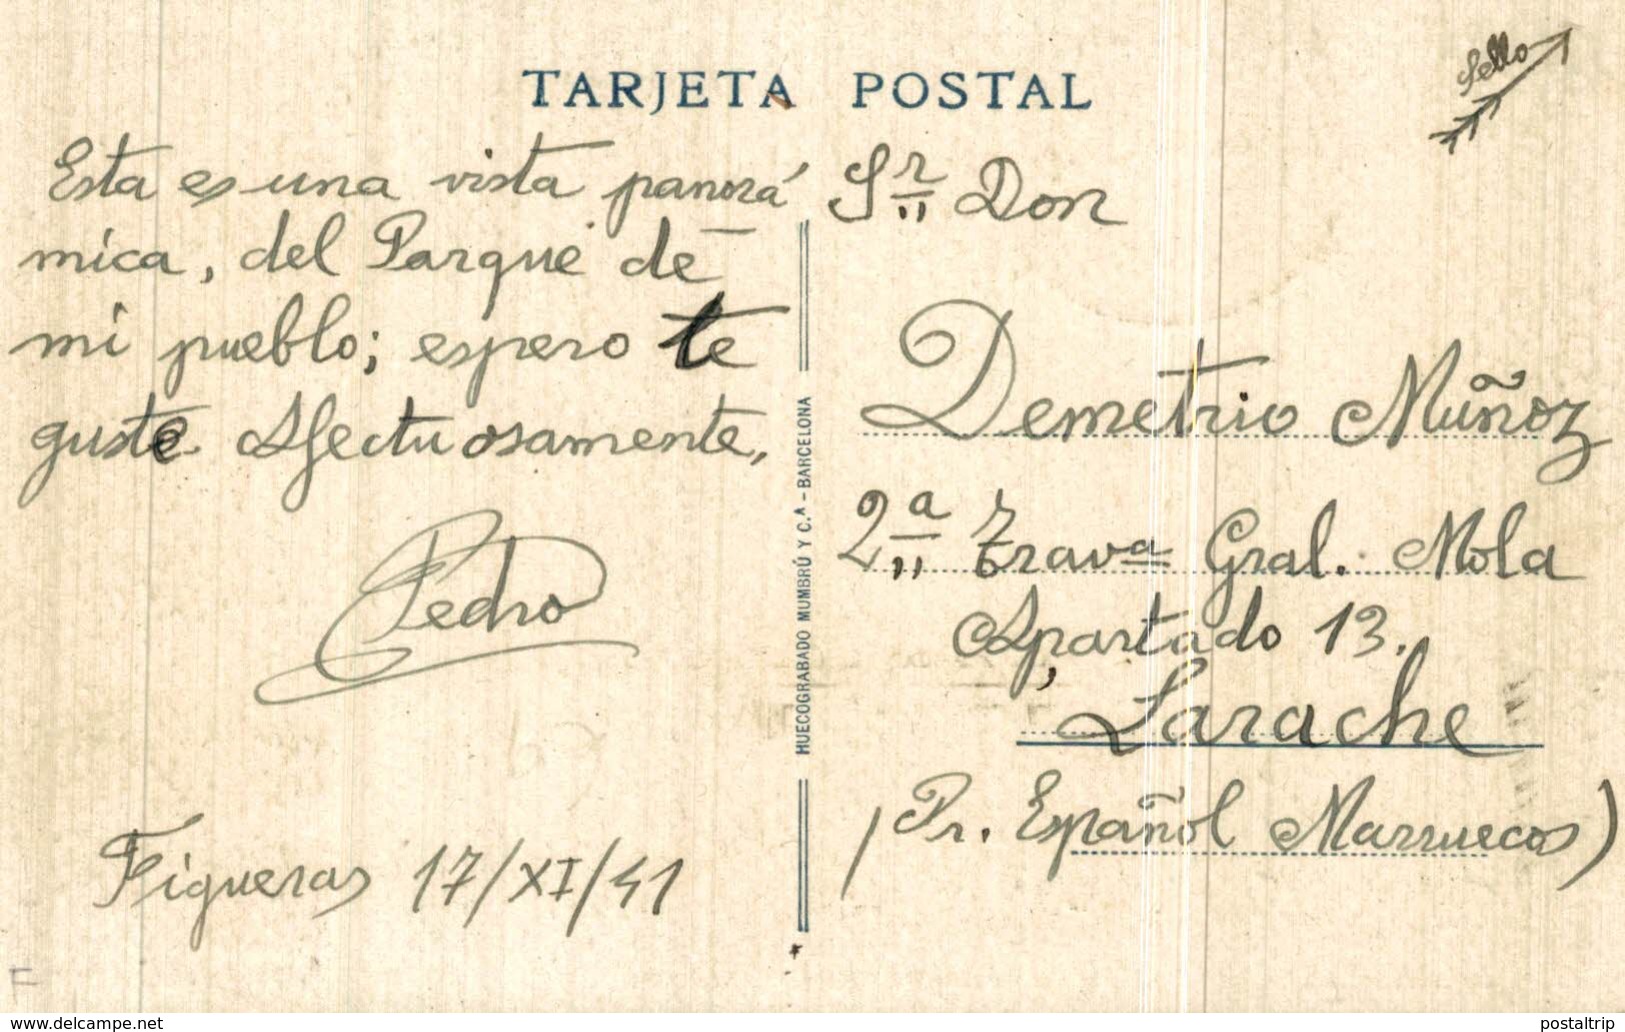 Sello
TARJETA POSTAL
Esta es una vista panorá
mica, del Parque de
mi pueblo; espero te
guste Afectuosamente,
Pedro
Figueras 17/XI/41
HUECOGRABADO MUMBRÚ Y C.ª - BARCELONA
Sr Don
Demetrio Muñoz
2ª Travª Gral. Mola
Apartado 13.
Larache
(Pr. Español Marruecos)
www.delcampe.net
postaltrip